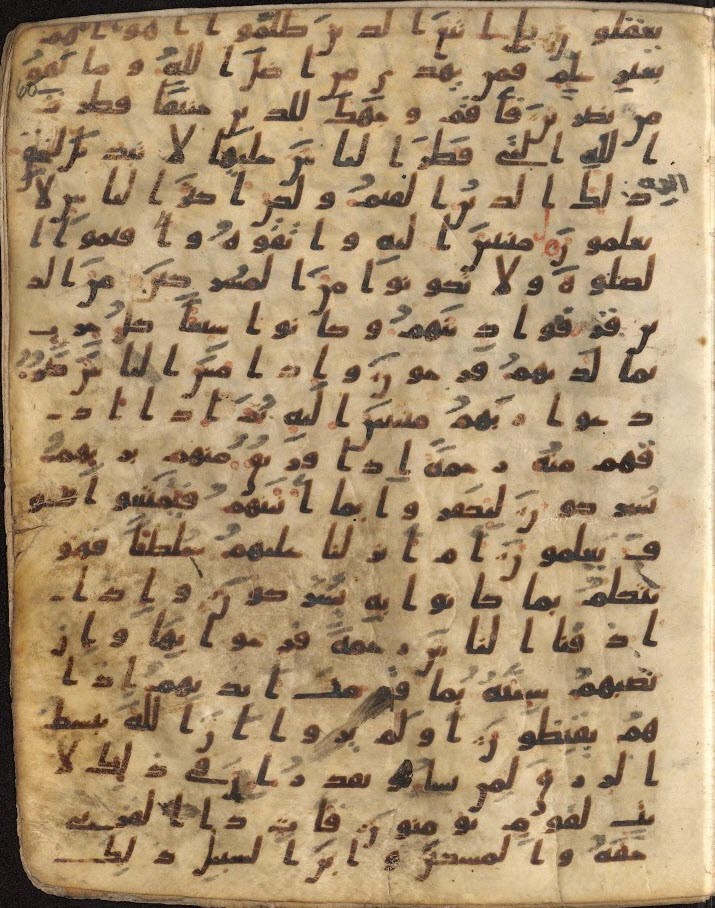 يعقلون بل اتبع الذين ظلموا اهواهم
بغير علم فمن يهدي من اضل الله و ما لهم
60
من نصرين فاقم وجهك للدين حنيفا فطرت
الله التي فطر الناس عليها لا تبديل لخلق
الله ذلك الدين القيم ولكن اكثر الناس لا
يعلمون منيبين اليه واتقوه واقيموا ا
لصلوة ولا تكونوا من المشركين من الذ
ين فرقوا دينهم وكانوا شيعا كل حزب
بما لديهم فرحون واذا مس الناس ضر
دعوا ربهم منيبين اليه ثم اذا اذا
قهم منه رحمة اذا فريق منهم بربهم
يشركون ليكفروا بما اتينهم فتمتعوا فسو
ف تعلمون ام انزلنا عليهم سلطنا فهو
يتكلم بما كانوا به يشركون واذا
اذقنا الناس رحمة فرحوا بها وان
تصبهم سيئة بما قدمت ايديهم اذا
هم يقنطون اولم يروا ان الله يبسط
الرزق لمن يشا ويقدر ان في ذلك لا
يت لقوم يومنون فات ذا القربى
حقه والمسكين وابن السبيل ذلك